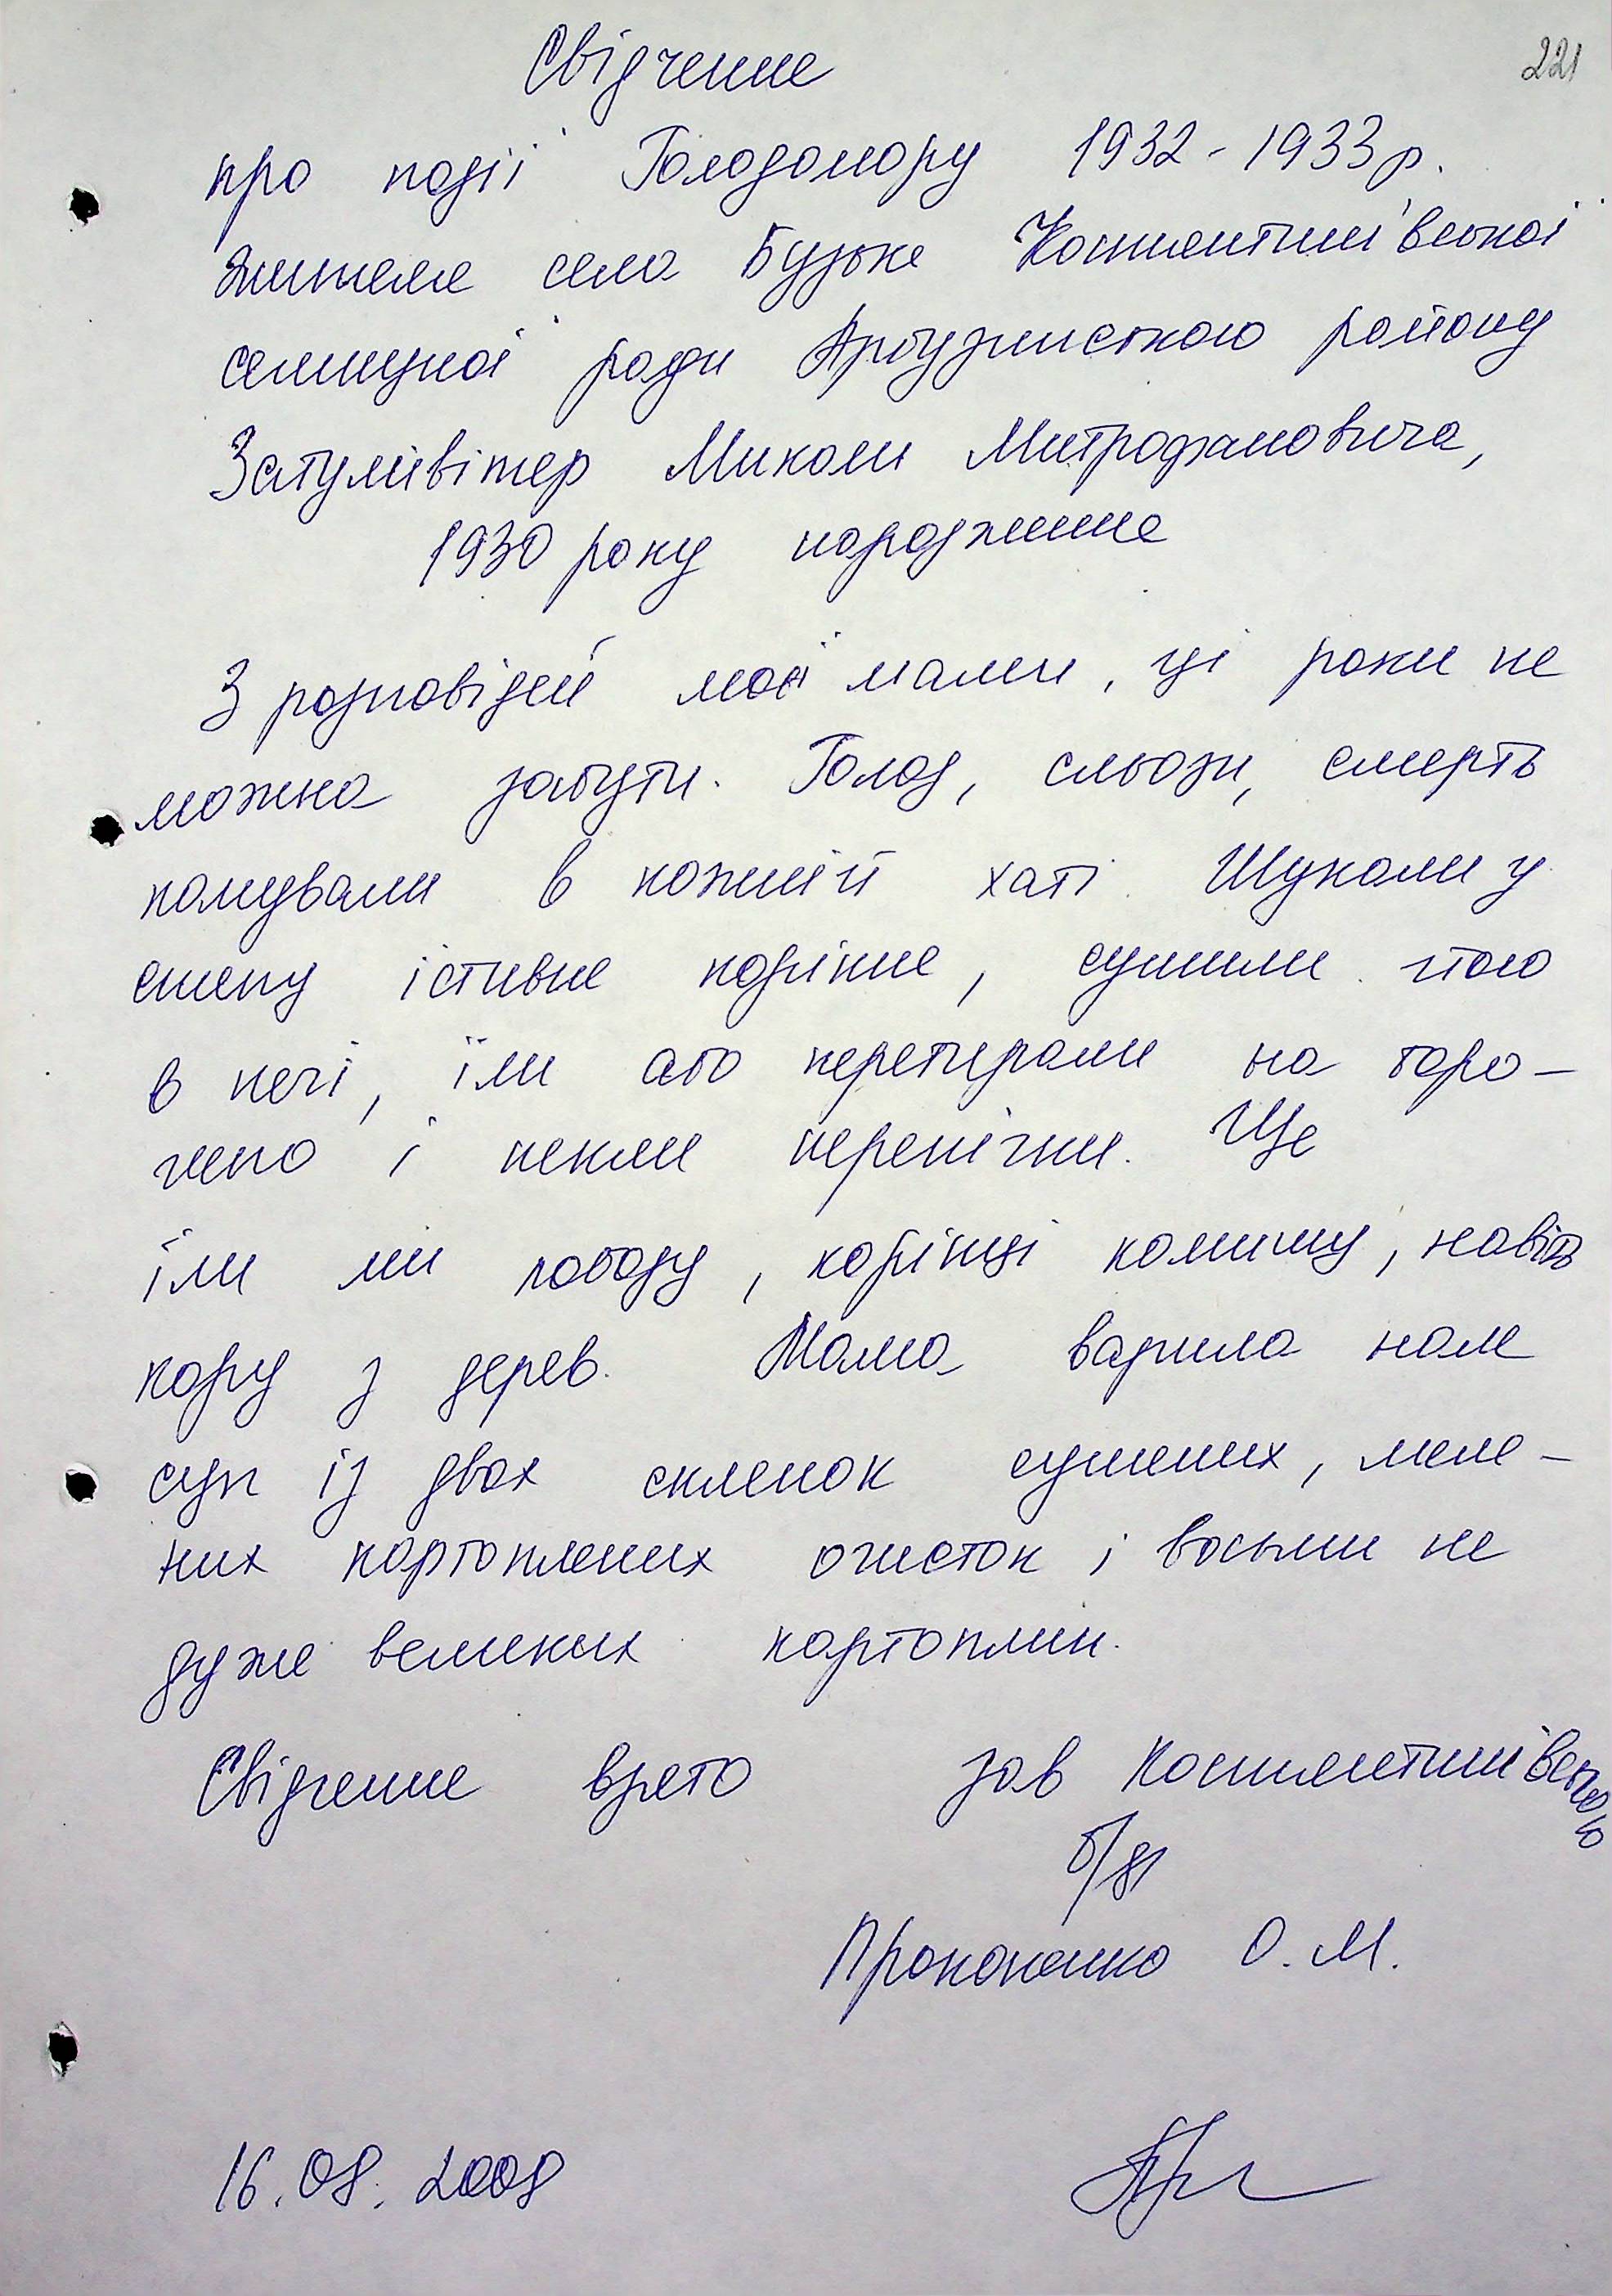 221
Свідчення
про події Голодомору 1932-1933 р.
жителя села Бузьке Костянтинівської
селищної ради Арбузинського району
Затуливітер Миколи Митрофановича,
1930 року народження
З розповідей моєї мами, ці роки не
можна забути. Голод, сльози, смерть
панували в кожній хаті. Шукали у
степу їстивне коріння, сушили його
в печі, їли або перетирали на боро-
шно і пекли перепічки. Ще
їли ми лободу, корінці комишу, навіть
кору з дерев. Мама варила нам
суп із двох склянок сушених, меле-
них картопляних очисток і восьми не
дуже великих картоплин.
Свідчення взято зав Костянтинівською
б/ф
Прокопенко О. М.
16.08.2008